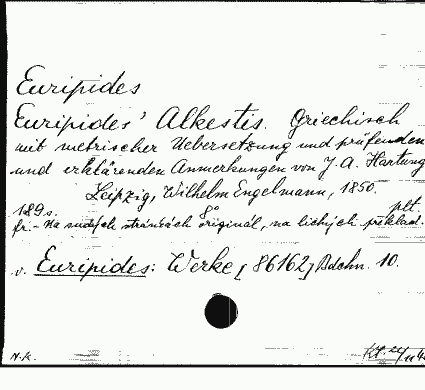 Euripides
Euripides' Alkestis. Griechisch
mit metrischer Uebersetzung und prüfenden
und erklärenden Anmerkungen von J. A. Hartung
Leipzig, Wilhelm Engelmann, 1850.
189 s. 8° plt.
fr. - Na sudých stránkách originál, na lichých překlad.
v. Euripides: Werke [86162] Bdchn. 10.
N.K.